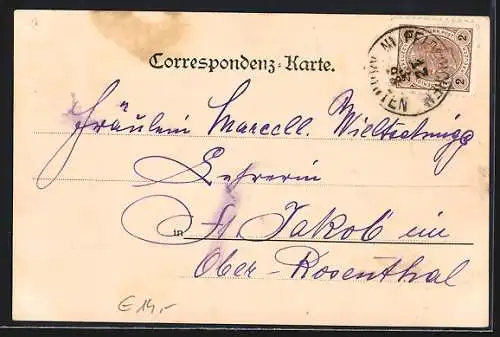 Correspondenz-Karte.
2 2
Fräulein Marcell.
Lehrerin
in St Jakob im
Ober-Rosenthal
E 14,-